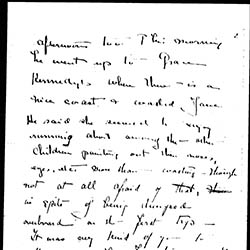 afternoon too. This morning
he went up to Grace
Kennedy's where there is a
nice coast & waded. Jane
He said she seemed to enjoy
running about among the other
children pointing out their noses,
eyes, etc. more than coasting though
not at all afraid of that,
in spite of being dumped
overboard on the first trip
It was very kind of